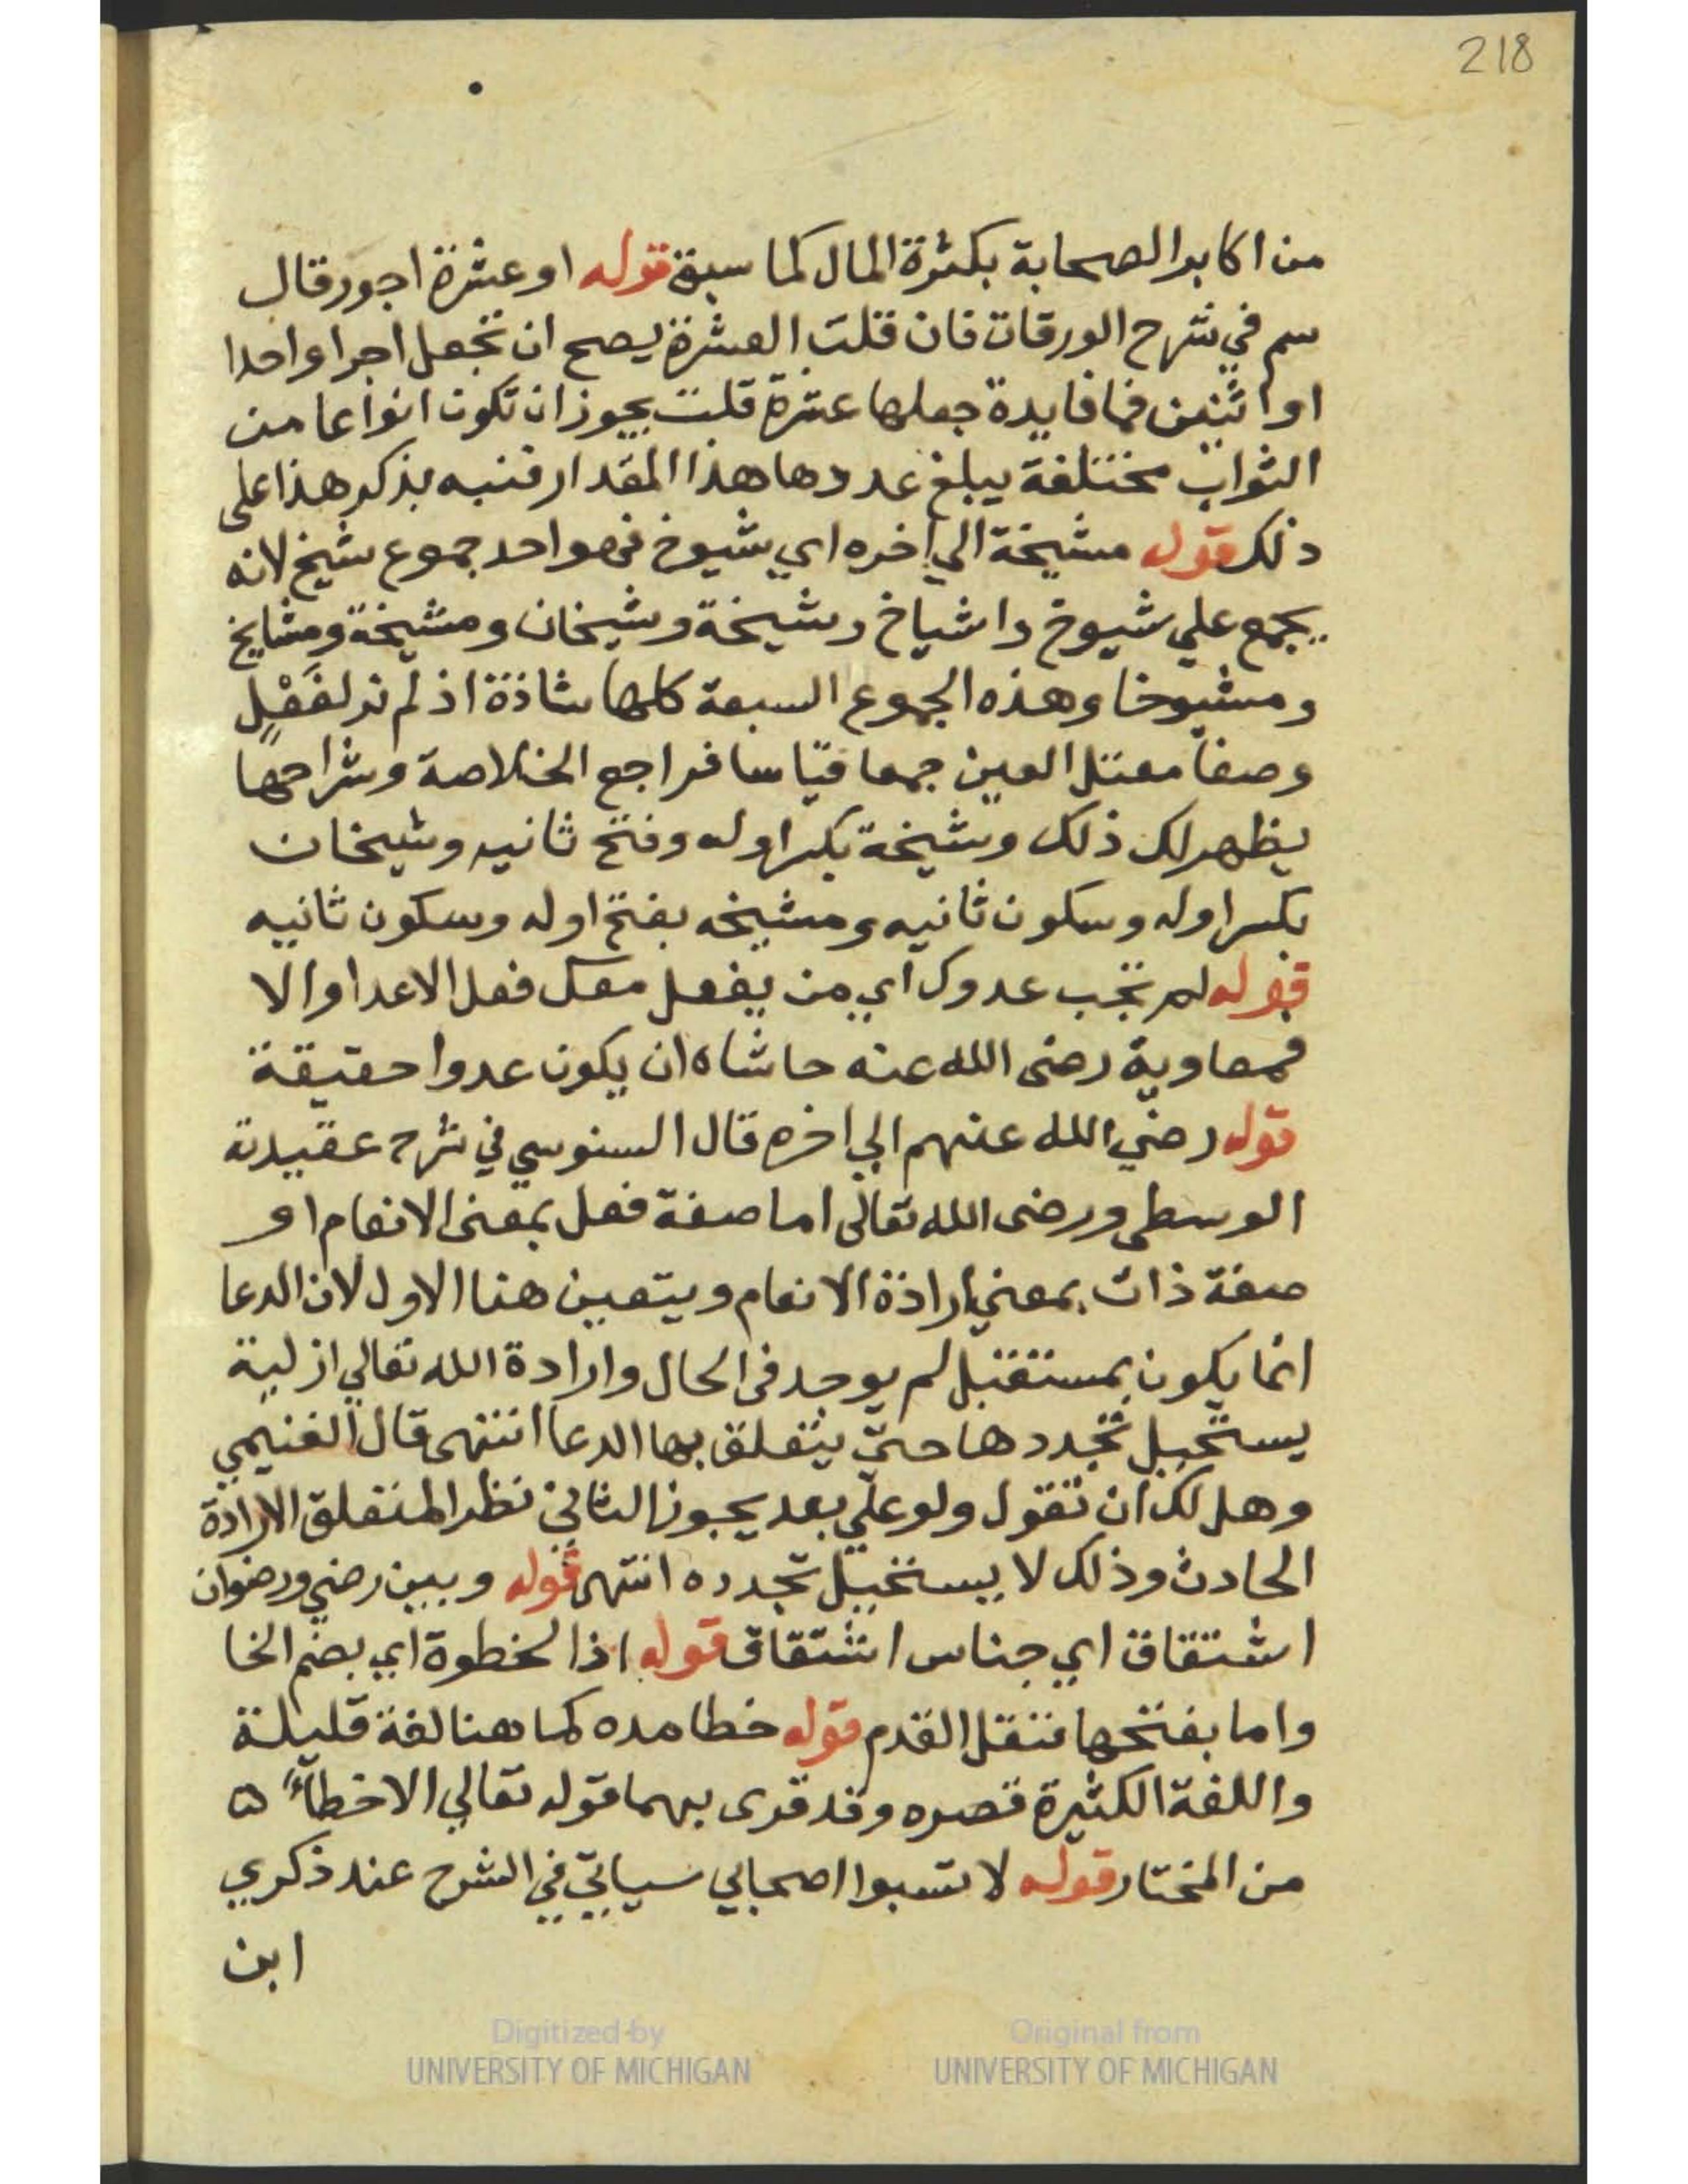 218
من اكابر الصحابة بكثرة المال كما سبق قوله او عشرة اجور قال
سم في شرح الورقات فان قلت العشرة يصح ان تجعل اجرا واحدا
او اثنين فما فايدة جعلها عشرة قلت يجوز ان تكون انواعا من
الثواب مختلفة يبلغ عددها هذا المقدار فنبه بذكر هذا على
ذلك قوله مشيخة الي اخره اي شيوخ فهو احد جموع شيخ لانه
يجمع علي شيوخ واشياخ وشيخة وشيخان ومشيخة ومشايخ
ومشيوخا وهذه الجموع السبعة كلها شاذة اذ لم نر لفَعْلٍ
وصفا معتل العين جمعا قياسا فراجع الخلاصة وشراحها
يظهر لك ذلك وشيخة بكسر اوله وفتح ثانيه وشيخان
بكسر اوله وسكون ثانيه ومشيخه بفتح اوله وسكون ثانيه
قوله لم تجب عدوك اي من يفعل معك فعل الاعدا والا
فمعاوية رضى الله عنه حاشاه ان يكون عدوا حقيقة
قوله رضي الله عنهم الي اخره قال السنوسي في شرح عقيدته
الوسطى ورضى الله تعالى اما صفة فعل بمعنى الانعام او
صفة ذات بمعني ارادة الانعام ويتعين هنا الاول لان الدعا
انما يكون بمستقبل لم يوجد فى الحال وارادة الله تعالي ازلية
يستحيل تجددها حتي يتعلق بها الدعا انتهى قال الغنيمي
وهل لك ان تقول ولو علي بعد يجوز الثاني نظرا لمتعلق الارادة
الحادث وذلك لا يستحيل تجدده انتهى قوله وبين رضي ورضوان
اشتقاق اي جناس اشتقاق قوله اذ الخطوة اي بضم الخا
واما بفتحها فنقل القدم قوله خطا مده كما هنا لغة قليلة
واللغة الكثيرة قصره وقد قرى بهما قوله تعالي الا خطآءً ه
من المختار قوله لا تسبوا اصحابي سياتي في الشرح عند ذكري
ابن
Digitized by
UNIVERSITY OF MICHIGAN
Original from
UNIVERSITY OF MICHIGAN